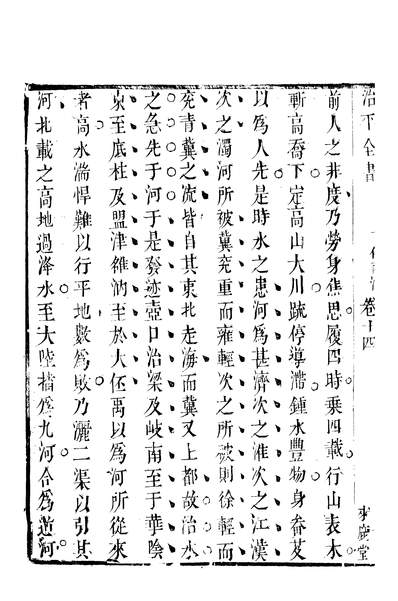 治平全書
卷十四
前人之非度乃勞身焦思履四時乘四載行山表木
斬高喬下定高山大川疏停導滯鍾水豐物身畚芟
以為人先是時水之患河為甚濟次之淮次之江漢
次之濁河所被冀兖重而雍輕次之所被則徐輕而
兖青冀之流皆自其東北走海而冀又上都故治水
之急先于河于是發迹壺口治梁及岐南至于華陰
東至底柱及盟津雒汭至於大伾禹以為河所從來
者高水湍悍難以行平地數為敗乃灑二渠以引其
河北載之高地過洚水至大陸播為九河合為逆河